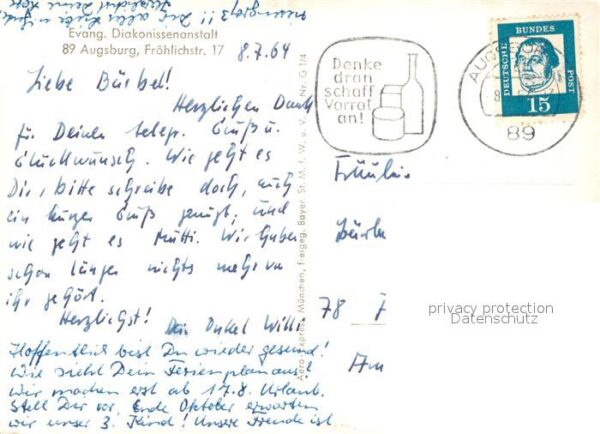 Evang. Diakonissenanstalt
89 Augsburg, Fröhlichstr. 17
8.7.64
Liebe Bärbel!
Herzlichen Dank
für Deinen telegr. Gruß u.
Glückwunsch. Wie geht es
Dir, bitte schreibe doch, auch
ein kurzer Gruß genügt, und
wie geht es Mutti. Wir haben
schon länger nichts mehr von
ihr gehört.
Herzlichst! Dein Onkel Willi
Hoffentlich bist Du wieder gesund!
Wie sieht Dein Ferienplan aus?
Wir machen erst ab 17.8. Urlaub.
Stell Dir vor, Ende Oktober erwarten
wir unser 3. Kind! Unsere Freude ist
Aero Express, München, freigeg. Bayer. St. M. f. W. u. V. Nr. G 7/4
Denke
dran
schaff
Vorrat
an!
AUGSBURG
89
DEUTSCHE BUNDES POST
15
Fräulein
78 F
Am
privacy protection
Datenschutz